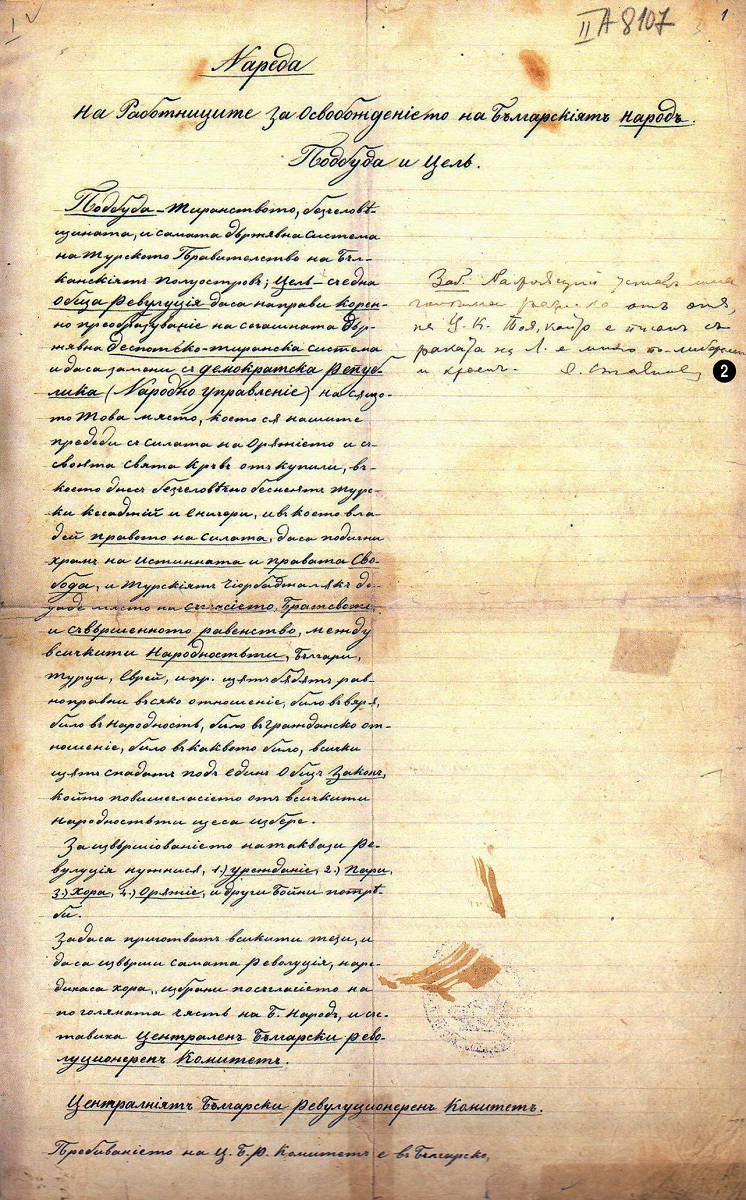 I
II A 8107
1
Нареда
на Работниците За Освобожденіето на Българскіятъ народъ.
Подбуда и Цель.
Подбуда – Тиранството, безчеловѣ-
щината, и самата държавна система
на Турското Правителство на Бъл-
канскіятъ полуостровъ; Цель – съ една
обща Революція даса направи корен-
но преобразуваніе на сегашната дър-
жавна деспотско-тиранска система
и даса замени съ демократска Репуб-
лика (Народно управленіе) на също-
то Това място, което ся нашите
прѣдеди съ силата на Оржжіето и съ
своята свята Кръвь откупили, въ
което днесъ безчеловѣчно беснеятъ турс-
ки кесаджіи и Еничери, и въ което вла-
дей правото на силата, даса подигни
храмъ на истинната и правата Сво-
бода, и Турскіятъ Чорбаджилъкъ да
даде място на съгласіето, Братството,
и съвършенното равенство, между
всичкити Народности, Българи,
Турци, Евреи, и пр. щатъ бѫдѫтъ рав-
ноправни въ всяко отношеніе, било въ вяра,
било въ Народность, било въ гражданско от-
ношеніе, било въ каквото било, всички
щатъ спадатъ подъ единъ Общъ Законъ,
който по вишегласіето отъ всичкити
Народности щеса избере.
За извършваніето на такавзи Ре-
вулуція нужнися, 1.) урежданіе, 2.) Пари,
3.) Хора, 4.) Оржжіе, и други Бойни потрѣ-
би.
За да са приготвятъ всичкити тези, и
даса извърши самата Революція, наре-
дихаса хора, избрани по съгласіето на
по голяната часть на Б. Народъ, и със-
тавиха Централенъ Български Рево-
луционеренъ Комитетъ.
Централніятъ Български Революционеренъ Комитетъ.
Пребиваніето на Ц. Б. Р. Комитетъ е въ Българско,
Заб. Настоящий уставъ има
отъ оня,
на Ц. К. Тоя, който е писанъ съ
рѫката на Л. е много по-либераленъ
и
2